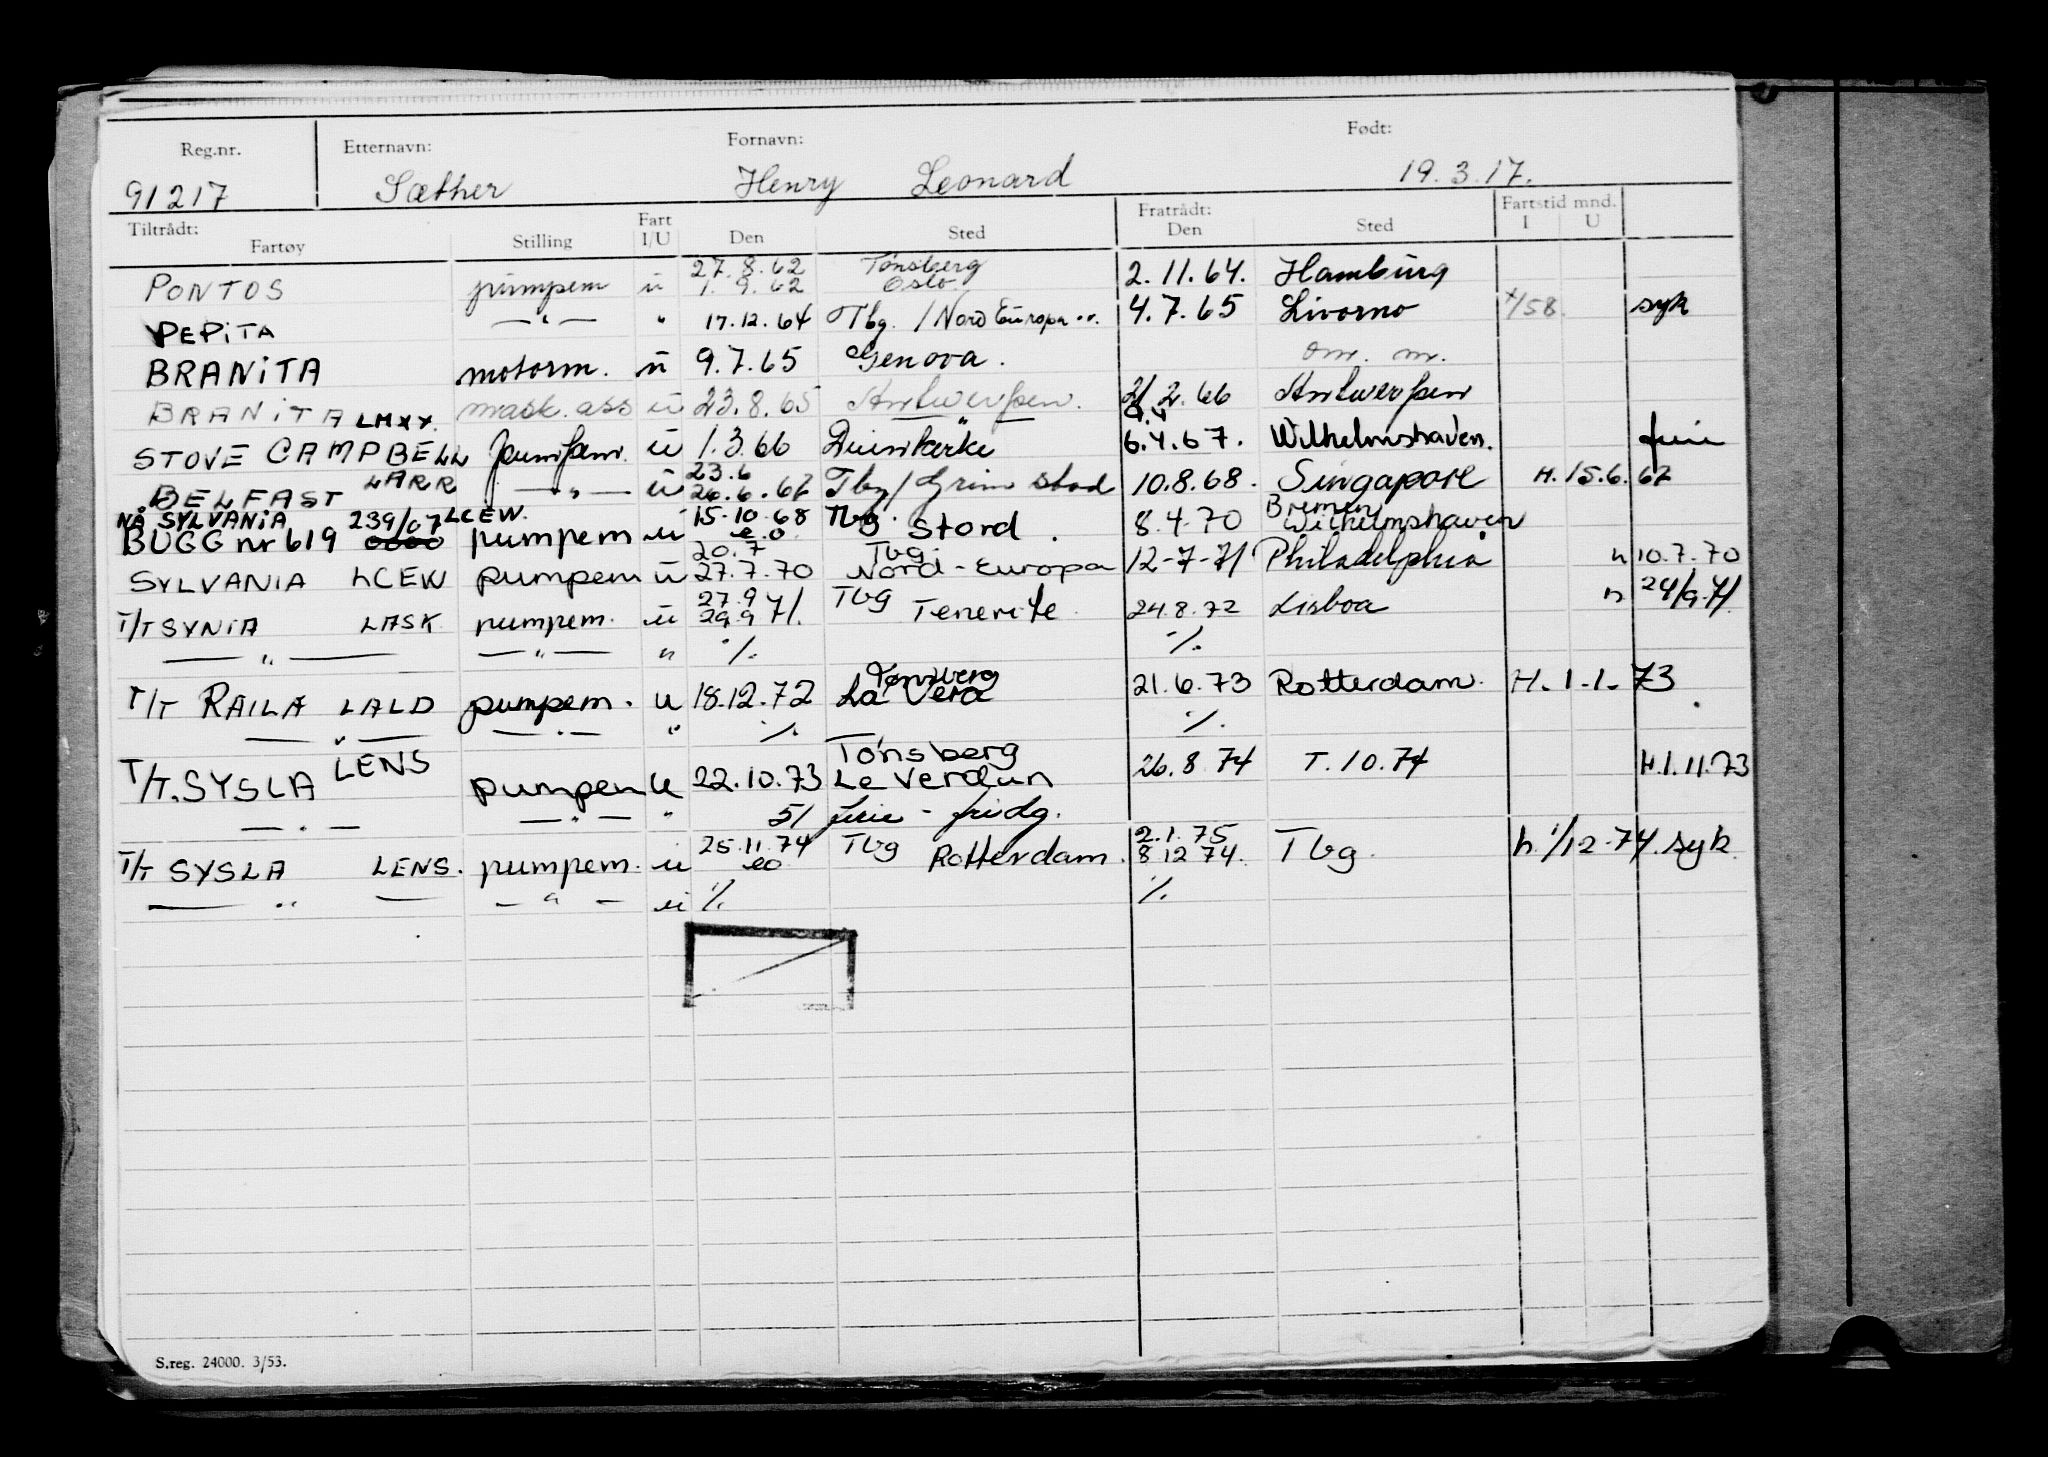 Reg.nr. Etternavn: Fornavn: Født:
91217 Sæther Henry Leonard 19.3.17.
Tiltrådt: Fartøy Stilling Fart I/U Den Sted Fratrådt: Den Sted Fartstid mnd. I U
27.8.62 Tønsberg
PONTOS pumpem u 1.9.62 Oslo 2.11.64. Hamburg
PEPITA —"— " 17.12.64 Tbg. / Nord Europa 4.7.65 Livorno /58 syk
BRANITA motorm. u 9.7.65 Genova. om. m.
BRANITA LMXX. mask. ass u 23.8.65 Antwerpen. 2/2.66 Antwerpen
STOVE CAMPBELL pumpem. u 1.3.66 Duinkerke 6.4.67. Wilhelmshaven. ferie
23.6
BELFAST LARR —"— u 26.6.67 Tbg / Grimstad 10.8.68. Singapore H. 15.6.67
NÅ SYLVANIA 239/07 LCEW. 15.10.68 Tbg. Bremen
BUGG nr 619 pumpem u e.o. Stord. 8.4.70 Wilhelmshaven
20.7 Tbg.
SYLVANIA LCEW pumpem u 27.7.70 Nord-Europa 12-7-71 Philadelphia h 10.7.70
27.9 Tbg
T/T SYNIA LASK pumpem. u 29.9 71. Tenerife 24.8.72 Lisboa h 24/9.71.
—"— —"— " %. %.
Tønsberg
T/T RAILA LALD pumpem. u 18.12.72 La Vera 21.6.73 Rotterdam. H. 1.1.73
—"— —"— " %. — %.
Tønsberg
T/T. SYSLA LENS pumpem u 22.10.73 Le Verdun 26.8.74 T.10.74 H.1.11.73
—"— —"— " 51 ferie - fridg.
25.11.74 Tbg 2.1.75
T/T SYSLA LENS. pumpem. u eo Rotterdam. 8.12.74. Tbg. h. 1/12.74. syk.
—"— —"— u %. %.
S.reg. 24000. 3/53.